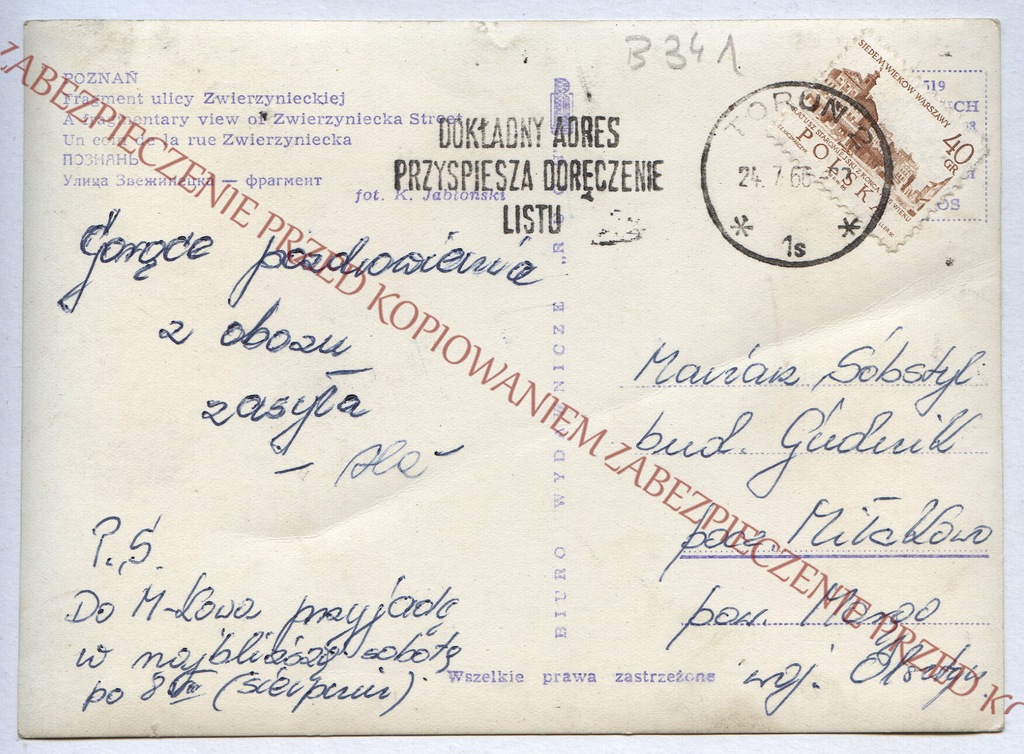 B 341
POZNAŃ
Fragment ulicy Zwierzynieckiej
A fragmentary view of Zwierzyniecka Street
Un coin de la rue Zwierzyniecka
ПОЗНАНЬ
Улица Звежинецка — фрагмент
fot. K. Jabłoński
DOKŁADNY ADRES
PRZYSPIESZA DORĘCZENIE
LISTU
TORUŃ 2
24. 7 66
1s
SIEDEM WIEKÓW WARSZAWY
40 GR
POLSKA
519
Gorące pozdrowienia
z obozu
zasyła
– Ala –
P.S.
Do M-kowa przyjadę
w najbliższą sobotę
po 8 VIII (sierpniu)
BIURO WYDAWNICZE „RUCH"
Marian Sobstyl
bud. Gudnik
pocz. Miłakowo
pow. Morąg
woj. Olsztyn
Wszelkie prawa zastrzeżone
ZABEZPIECZENIE PRZED KOPIOWANIEM ZABEZPIECZENIE PRZED KO